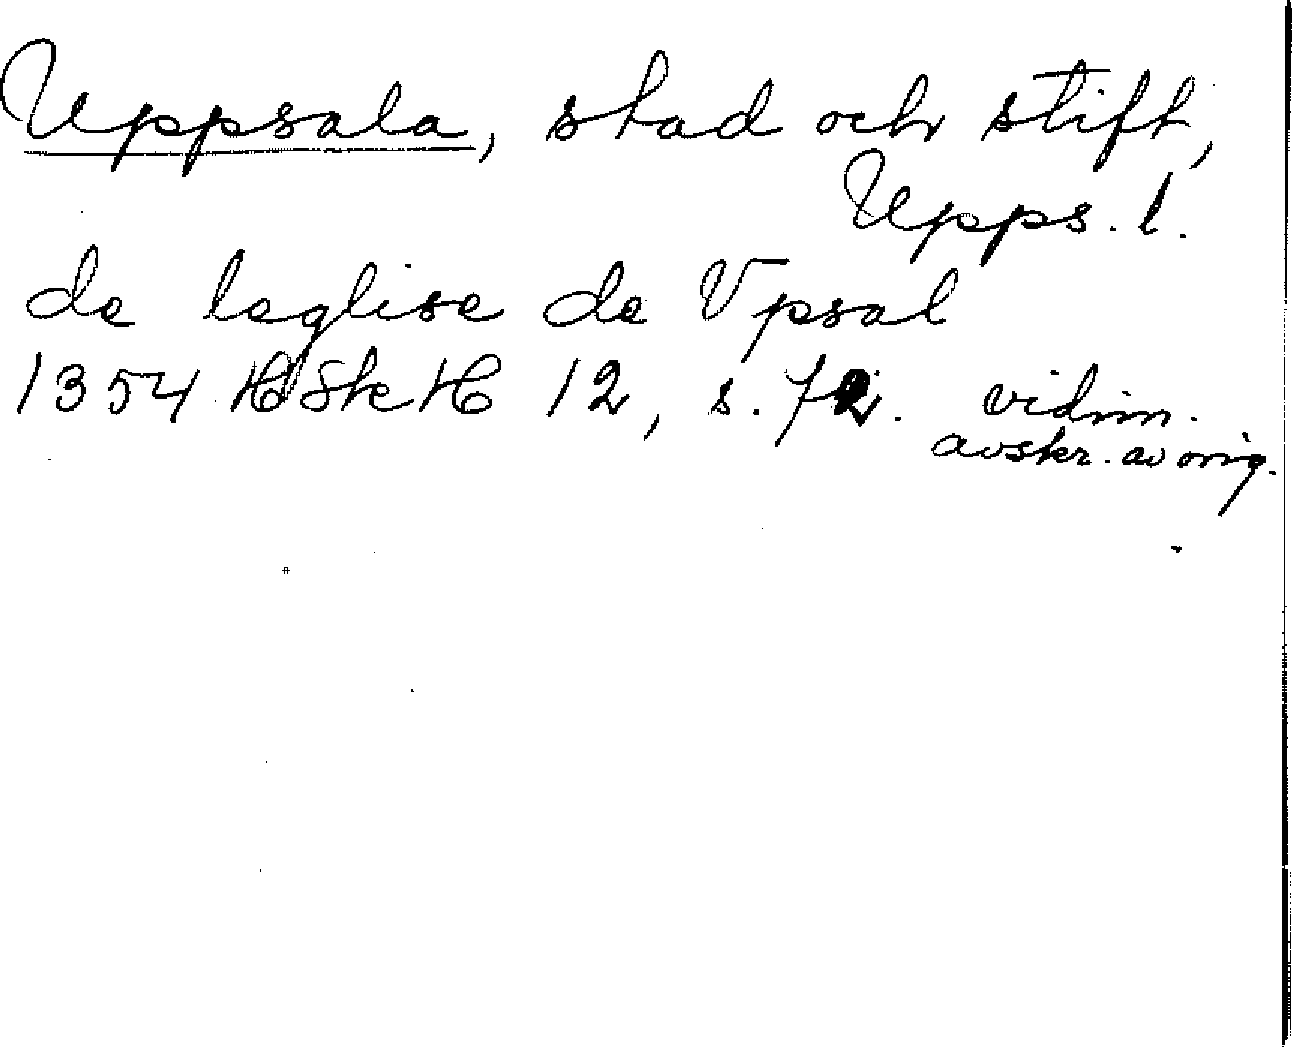 Uppsala, stad och stift,
Upps. l.
de leglise de Vpsal
1354 HSkH 12, s. 72. vidim.
avskr. av orig.